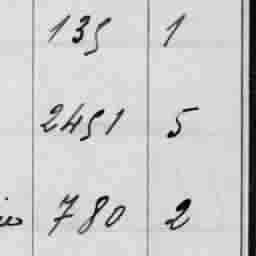 135 1
2451 5
780 2